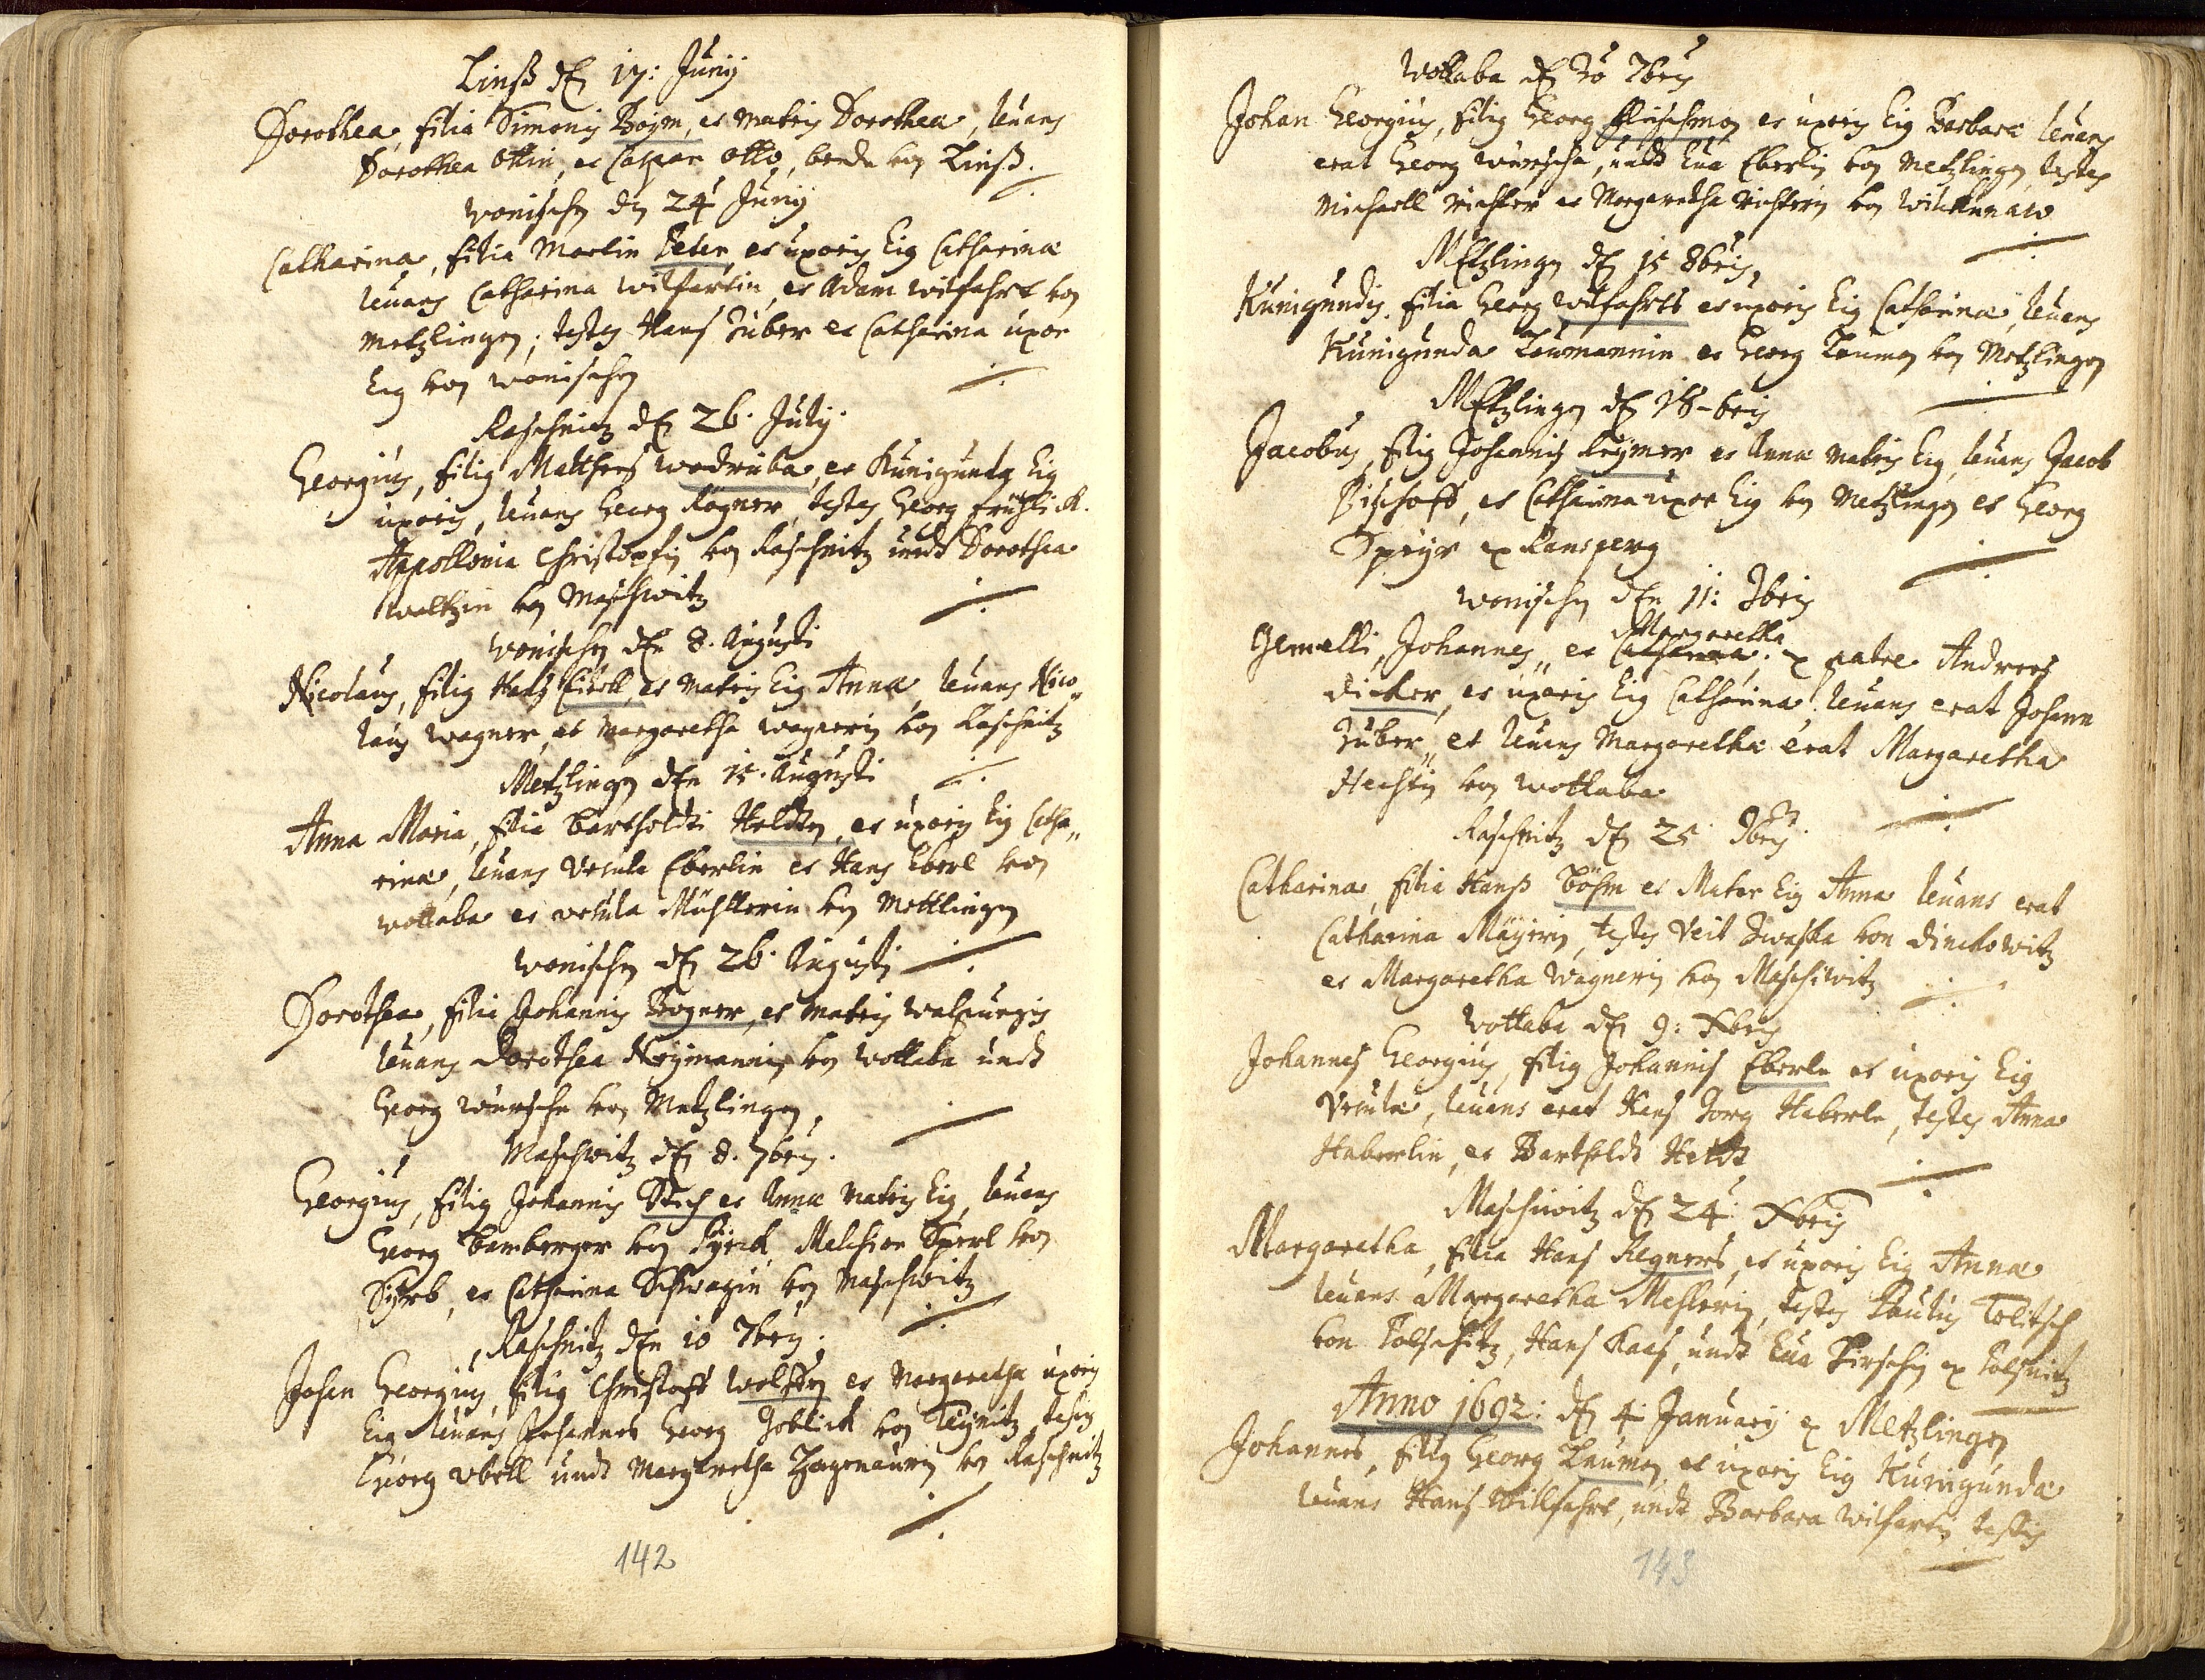 Linß dℓ 17: Junij
Dorothea, filia Simonis Böjm, et matris Dorotheæ, leuans
Dorothea Ottin, et Caspar Otto, beede von Linß.
Wonischen den 24 Junij
Catharina, filia Martin Peter, et uxoris Eig Catharinæ
leuans Catharina Wilfartin, et Adam Wilfahrt von
Metzlingen; testes Hans Huber et Catharina uxor
Eig von Wonischen
Raschnitz dℓ 26. Julij
Georgius, filig Matthæs Wodruba, et Kunigunda Eig
uxoris, leuans Georg Rogner, testes Georg Frühlick.
Appollonia Christopfin von Raschnitz undt Dorothea
Waltzin von Maschwitz
Wonischen den 8. Augusti
Nicolaus, filig Hans Eißell, et matris Eig Annæ, leuans Nico„
laus Wagner, et Margaretha Wagnerin von Raschnitz
Metzlingen den 15. Augusti
Anna Maria, filia Bartholdi Heldten, et uxoris Eig Catha„
rinæ, leuans Vrsula Eberlin et Hans Eberl von
Wottaba et Vrsula Mühllerin von Mettlingen
Wonischen dℓ 26. Augusti
Dorothea, filia Johannis Bogner, et matris Walpurgis
leuans Dorothea Neymannin von Wottaba undt
Georg Wursche von Metzlingen,
Maschwitz dℓ 8. 7bris.
Georgius, filig Johannis Stich et Annæ matris Eig, leuans
Georg Bamberger von Pyrck, Melchior Sperl von
Syrb, et Catharina Schwagin von Maschwitz
Raschnitz den 10 7bris.
Johan Georgius, filig Christoff Wolffen et Margaretha uxoris
Eig leuans Johannes Georg Goblick von Teynitz, testes
Georg Vbell undt Margaretha Hagenaurin von Raschnitz
142
Wottaba dℓ 30 7bris
Johan Georgius, filig Georg Fleischmon et uxoris Eig Barbaræ leuans
erat Georg Wursche, undt Eua Eberlin von Metzlingen, testes
Michaell Richter et Margaretha Richterin von Wilckenaw
Metzlingen dℓ 15 8bris,
Kunigundis. filia Georg Wilfahrts et uxoris Eig Catharinæ, leuans
Kunigunda Laumannin et Georg Lauman von Metzlingen
Metzlingen dℓ 18-bris
Jacobus, filig Johannis Reymer et Annæ matris Eig, leuans Jacob
Bischoff, et Catharina uxor Eig von Metzlingen et Georg
Speyr ex Ransperg
Wonischen den 11: 9bris
Margaretha
Gemelli, Johannes„ et Catharina. ex patre Andrees
Dicker, et uxoris Eig Catharinæ. leuans erat Johann
Huber„ et leuans Margarethæ erat Margaretha
Hechtin von Wottaba
Raschnitz dℓ 25 9bris.
Catharina, filia Hanß Böhm et Mater Eig Anna leuans erat
Catharina Mäyrin, testes Veit Iwaska von Dinckowitz
et Margaretha Wagnerin von Maschwitz
Wottaba dℓ 9: Xbris
Johannes Georgius, filig Johannis Eberle et uxoris Eig
Vrsulæ, leuans erat Hans Jorg Haberle, testes Anna
Haberlin, et Bartholdt Heldt
Maschwitz dℓ 24 Xbris
Margaretha, filia Hans Regners, et uxoris Eig Annæ
leuans Margaretha Meslerin, testes Paulus Tolitsch
von Polschitz, Hans Raas, undt Eua Pirschin ex Polschitz
Anno 1692: dℓ 4 Januarij ex Metzlingen
Johannes, filig Georg Lauman et uxoris Eig Kunigunda
leuans Hans Willfahrt, undt Barbara Wilfartin testis
143